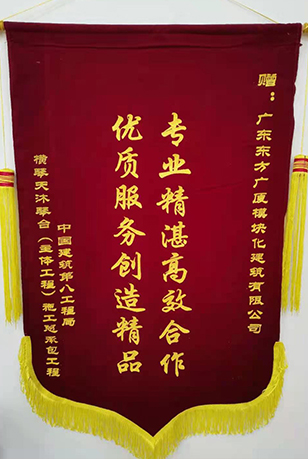 赠：广东东方广厦模块化建筑有限公司
专业精湛高效合作
优质服务创造精品
中国建筑第八工程局
横琴天沐琴台（主体工程）施工总承包工程